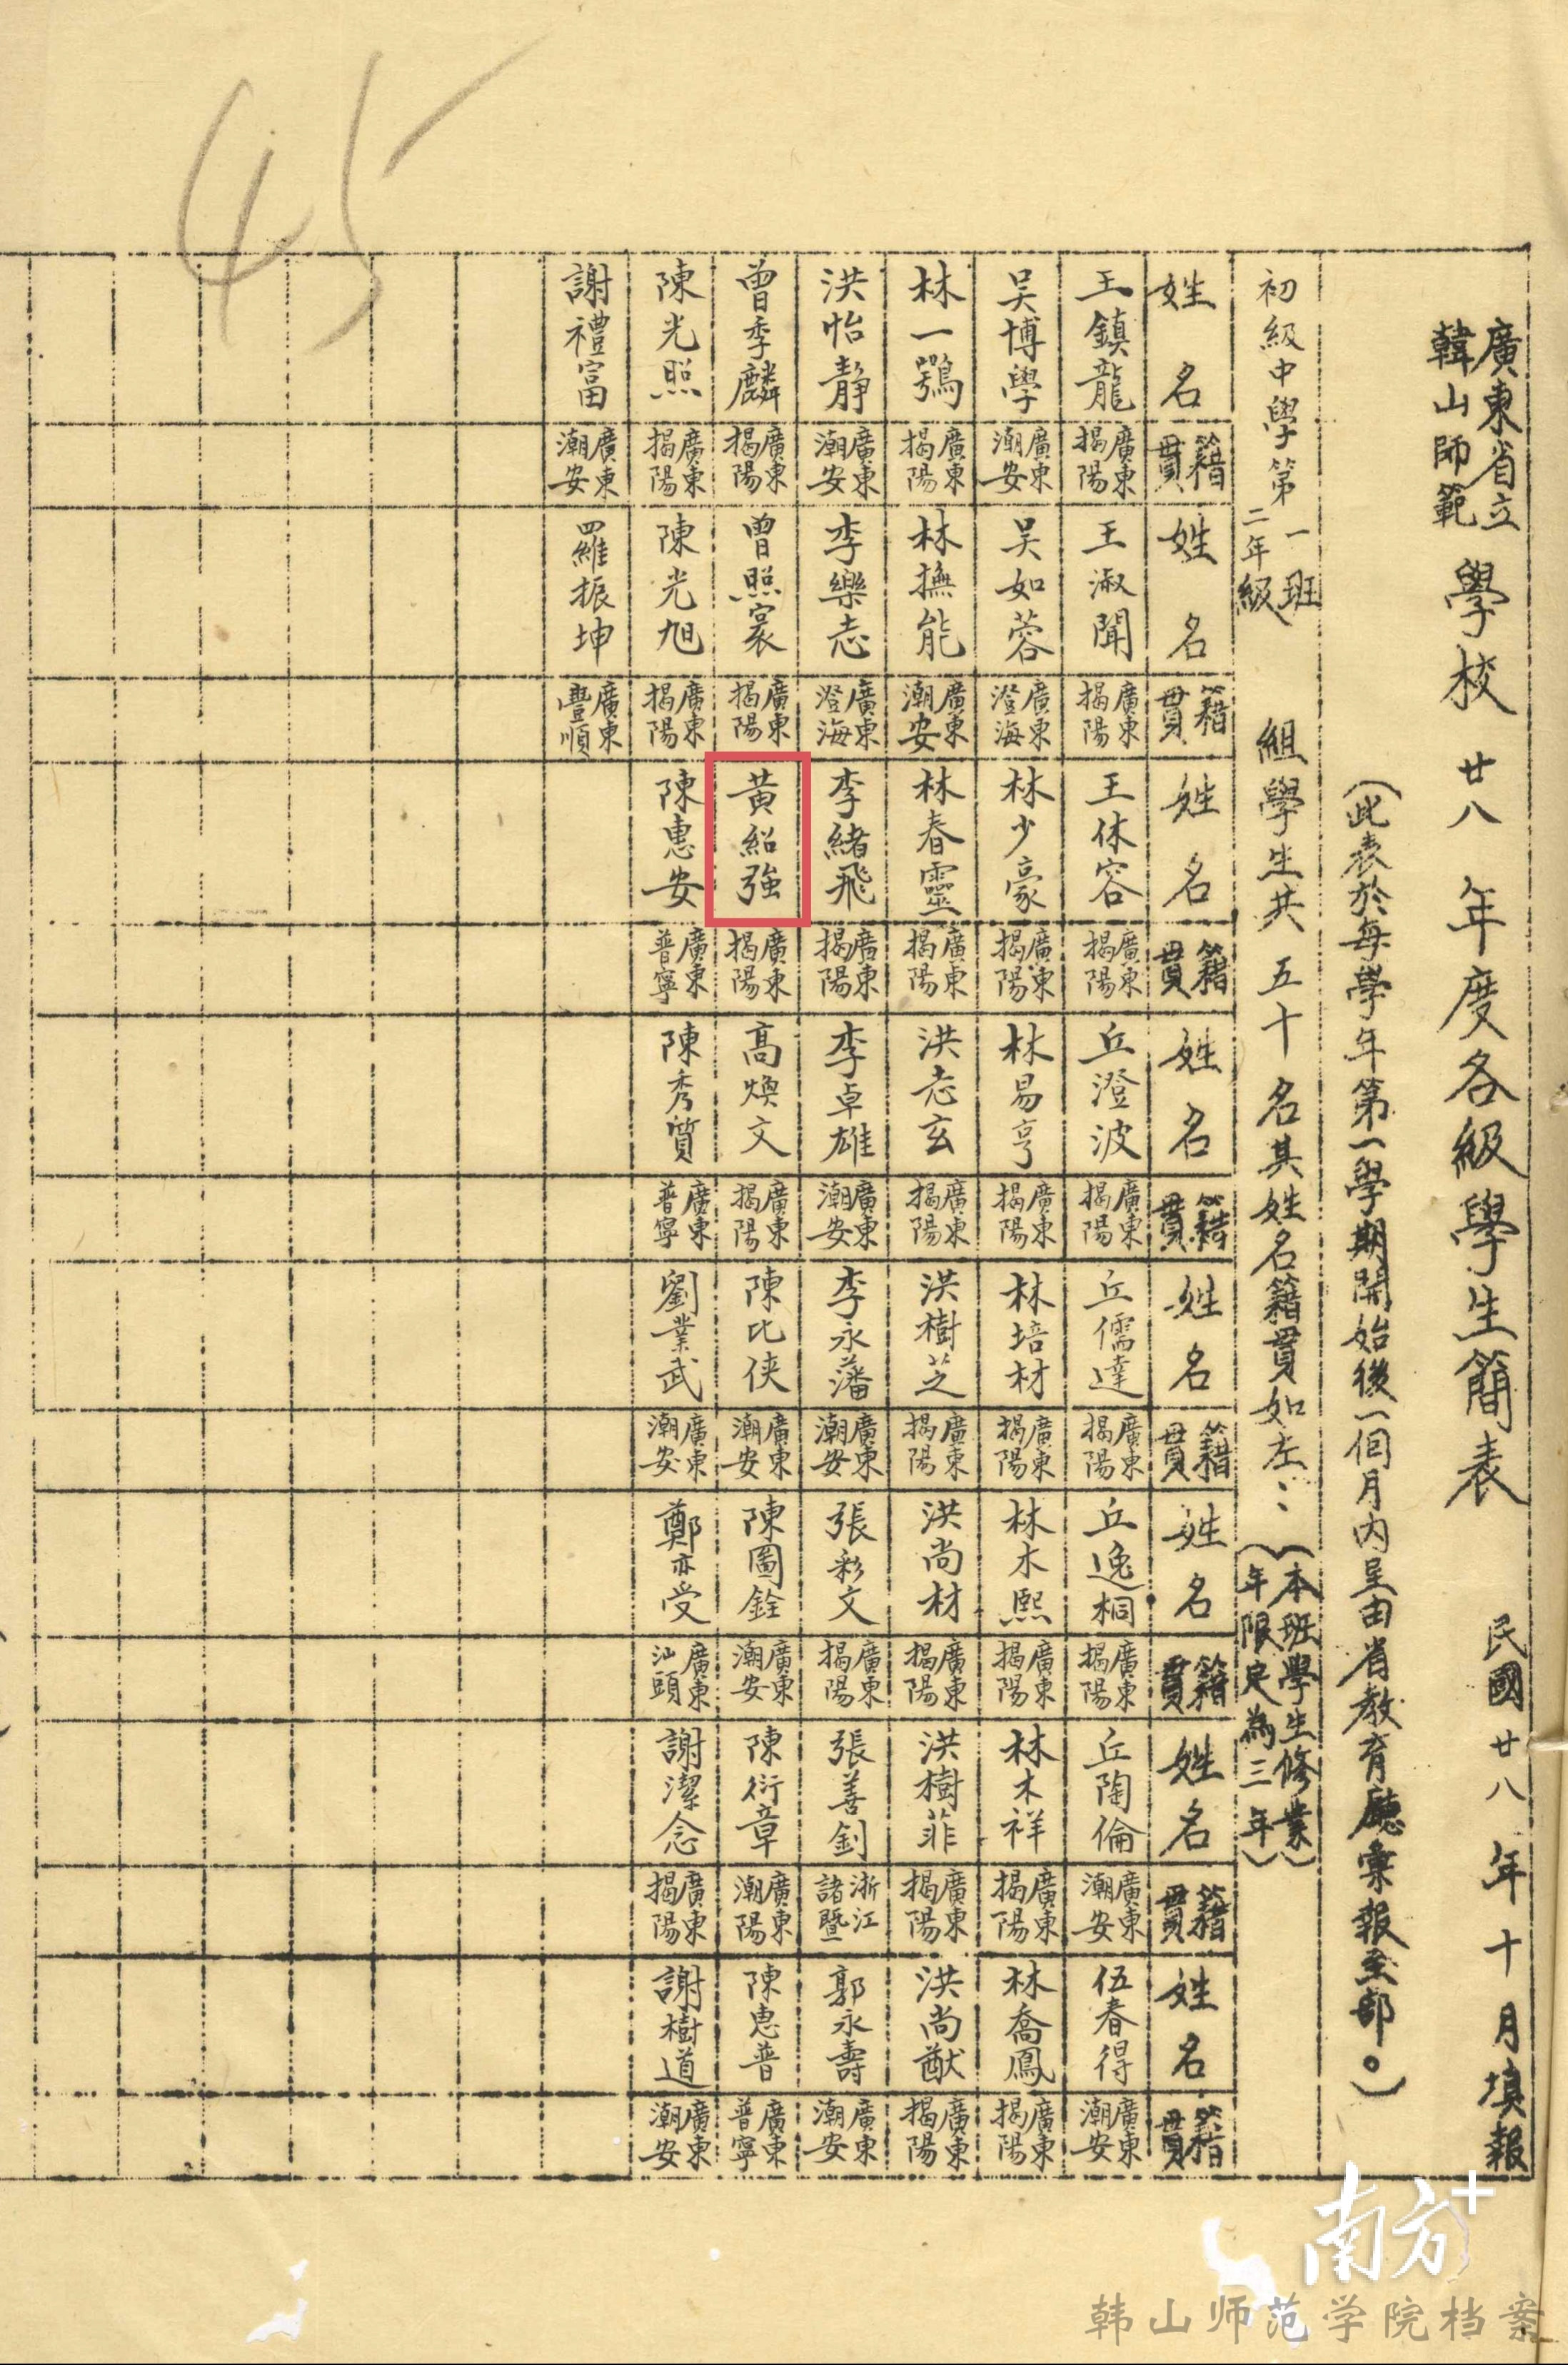 45
廣東省立
韓山師範
學校 廿八 年度各級學生簡表 民國廿八年十月填報
(此表於每學年第一學期開始後一個月內呈由省教育廳彙報至部。)
初級中學第
一班
二年級
組學生共 五十 名其姓名籍貫如左：
(本班學生修業
年限定為三年)
姓名 籍貫 姓名 籍貫 姓名 籍貫 姓名 籍貫 姓名 籍貫 姓名 籍貫 姓名 籍貫 姓名 籍貫
王鎮龍 廣東揭陽 王淑聞 廣東揭陽 王休容 廣東揭陽 丘澄波 廣東揭陽 丘儒達 廣東揭陽 丘逸桐 廣東揭陽 丘陶倫 廣東潮安 伍春得 廣東潮安
吴博學 廣東潮安 吴如蓉 廣東澄海 林少豪 廣東揭陽 林易亨 廣東揭陽 林培材 廣東揭陽 林木熙 廣東揭陽 林木祥 廣東揭陽 林喬鳳 廣東揭陽
林一鶚 廣東揭陽 林撫能 廣東潮安 林春靈 廣東揭陽 洪志玄 廣東揭陽 洪樹芝 廣東揭陽 洪尚材 廣東揭陽 洪樹菲 廣東揭陽 洪尚猷 廣東揭陽
洪怡静 廣東潮安 李樂志 廣東澄海 李緒飛 廣東揭陽 李卓雄 廣東潮安 李永藩 廣東潮安 張彩文 廣東揭陽 張善釗 浙江諸暨 郭永壽 廣東潮安
曾季麟 廣東揭陽 曾照寰 廣東揭陽 黄紹強 廣東揭陽 高煥文 廣東揭陽 陳比俠 廣東潮安 陳圖銓 廣東潮安 陳衍章 廣東潮陽 陳惠普 廣東普寧
陳光照 廣東揭陽 陳光旭 廣東揭陽 陳惠安 廣東普寧 陳秀質 廣東普寧 劉業武 廣東潮安 鄭亦受 廣東汕頭 謝潔念 廣東揭陽 謝樹道 廣東潮安
謝禮富 廣東潮安 羅振坤 廣東豐順
南方+
韩山师范学院档案